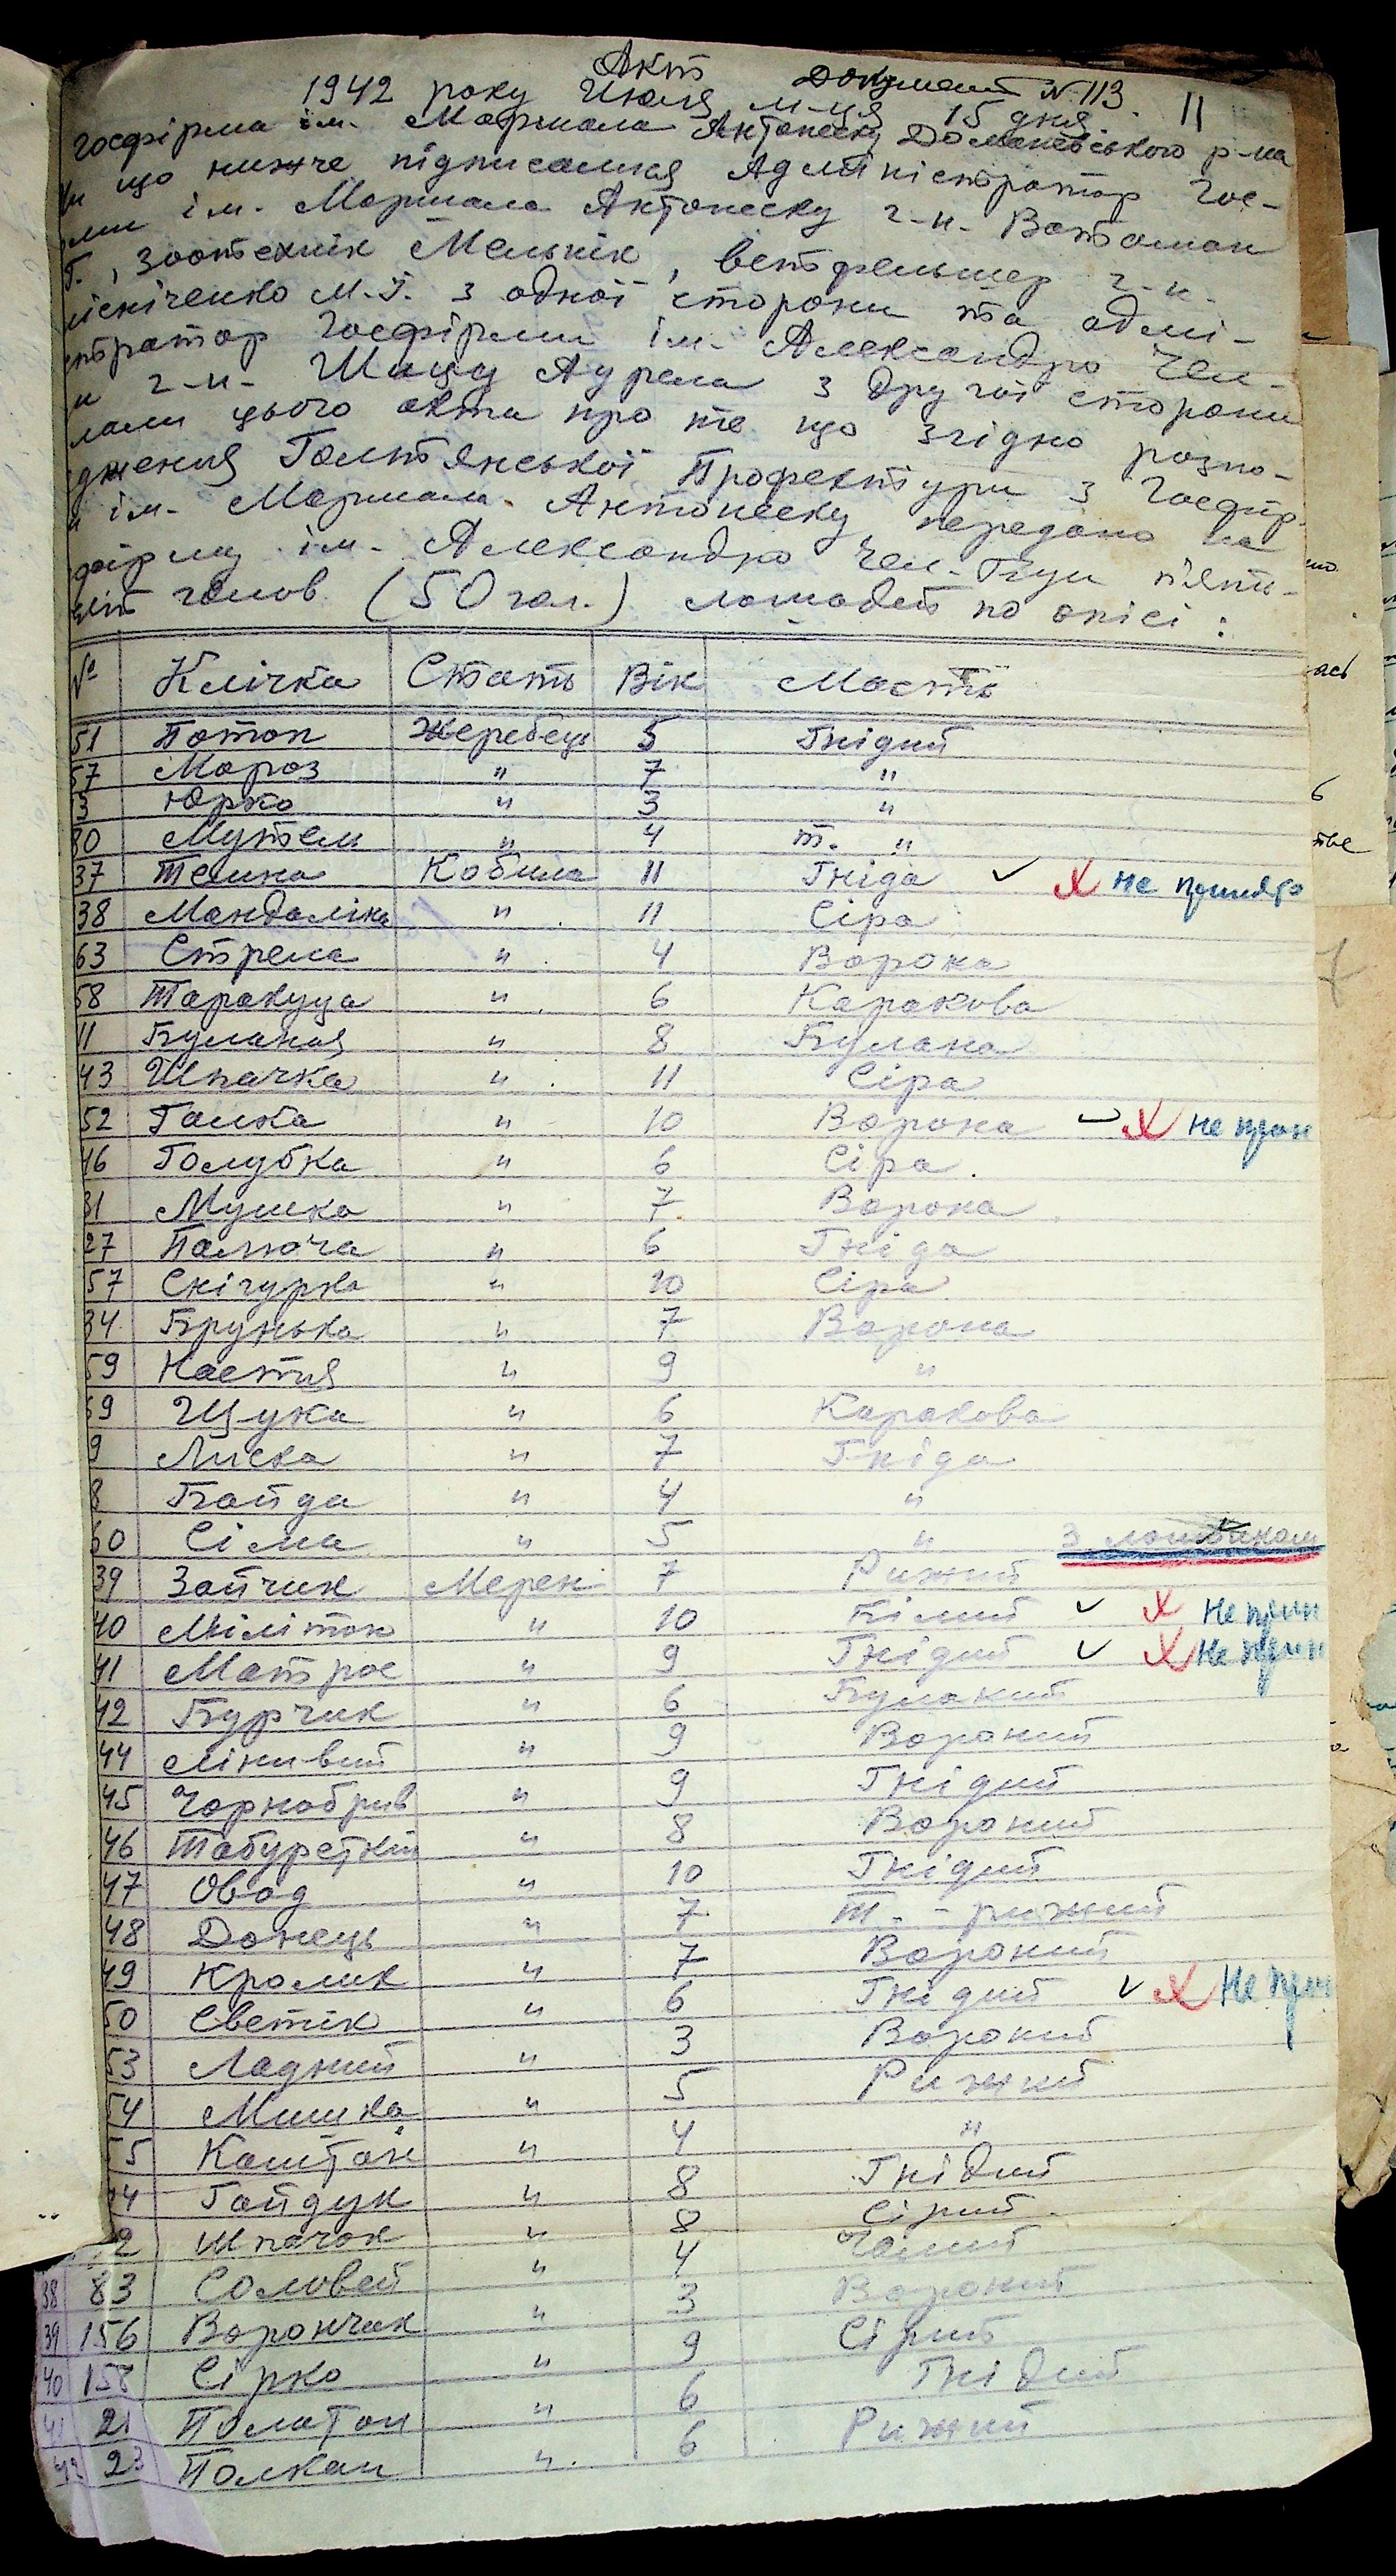 Акт
Документ №113. 11
1942 року Июля м-ця 15 дня
Госфірма ім. Маршала Антонеску Доманевського р-на
що нижче підписалися Адміністратор Гос-
ім. Маршала Антонеску г-н. Ватаман
Г., зоотехнік Мельнік, ветфельшер г-н.
М.Г. з одної сторони та адмі-
Госфірми ім. Александро Чел-
г-н. Аурела з другої сторони
цього акта про те що згідно розпо-
Голтянської Префектури з Госфір-
ім. Маршала Антонеску передано на
ім. Александро Чел-Бун п'ять-
голов (50 гол.) лошадей по опісі:
№ Клічка Стать Вік Масть
51 Потоп Жеребець 5 Гнідий
57 Мороз " 7 "
3 Юрко " 3 "
80 " 4 т. "
37 Кобила 11 Гніда ✓ X не принято
38 Мандаліна " 11 Сіра
63 Стрела " 4 Ворона
58 Таракуца " 6 Каракова
11 Буланая " 8 Булана
43 Шпачка " 11 Сіра
52 Галка " 10 Ворона ✓ X не прин
16 Голубка " 6 Сіра
31 Мушка " 7 Ворона
27 " 6 Гніда
57 Снігурка " 10 Сіра
34 Брунька " 7 Ворона
59 Настия " 9 "
69 Щука " 6 Каракова
9 Лиска " 7 Гніда
8 Гайда " 4 "
60 Сіма " 5 " З лошаком
39 Зайчик Мерен 7 Рижий
40 " 10 Білий ✓ X Не прин
41 Матрос " 9 Гнідий ✓ X Не прин
42 Бурчик " 6 Буланий
44 Лінивий " 9 Вороний
45 Чорнобрив " 9 Гнідий
46 Табуретний " 8 Вороний
47 Овод " 10 Гнідий
48 Донець " 7 Т. - рижий
49 Кролик " 7 Вороний
50 Светік " 6 Гнідий ✓ X Не прин
53 Ладний " 3 Вороний
54 Мишка " 5 Рижий
55 Каштан " 4 "
Гайдук " 8 Гнідий
Шпачок " 8 Сірий
38 83 Соловей " 4 Чалий
39 156 Ворончик " 3 Вороний
40 158 Сірко " 9 Сірий
41 21 " 6 Гнідий
42 23 Полкан " 6 Рижий